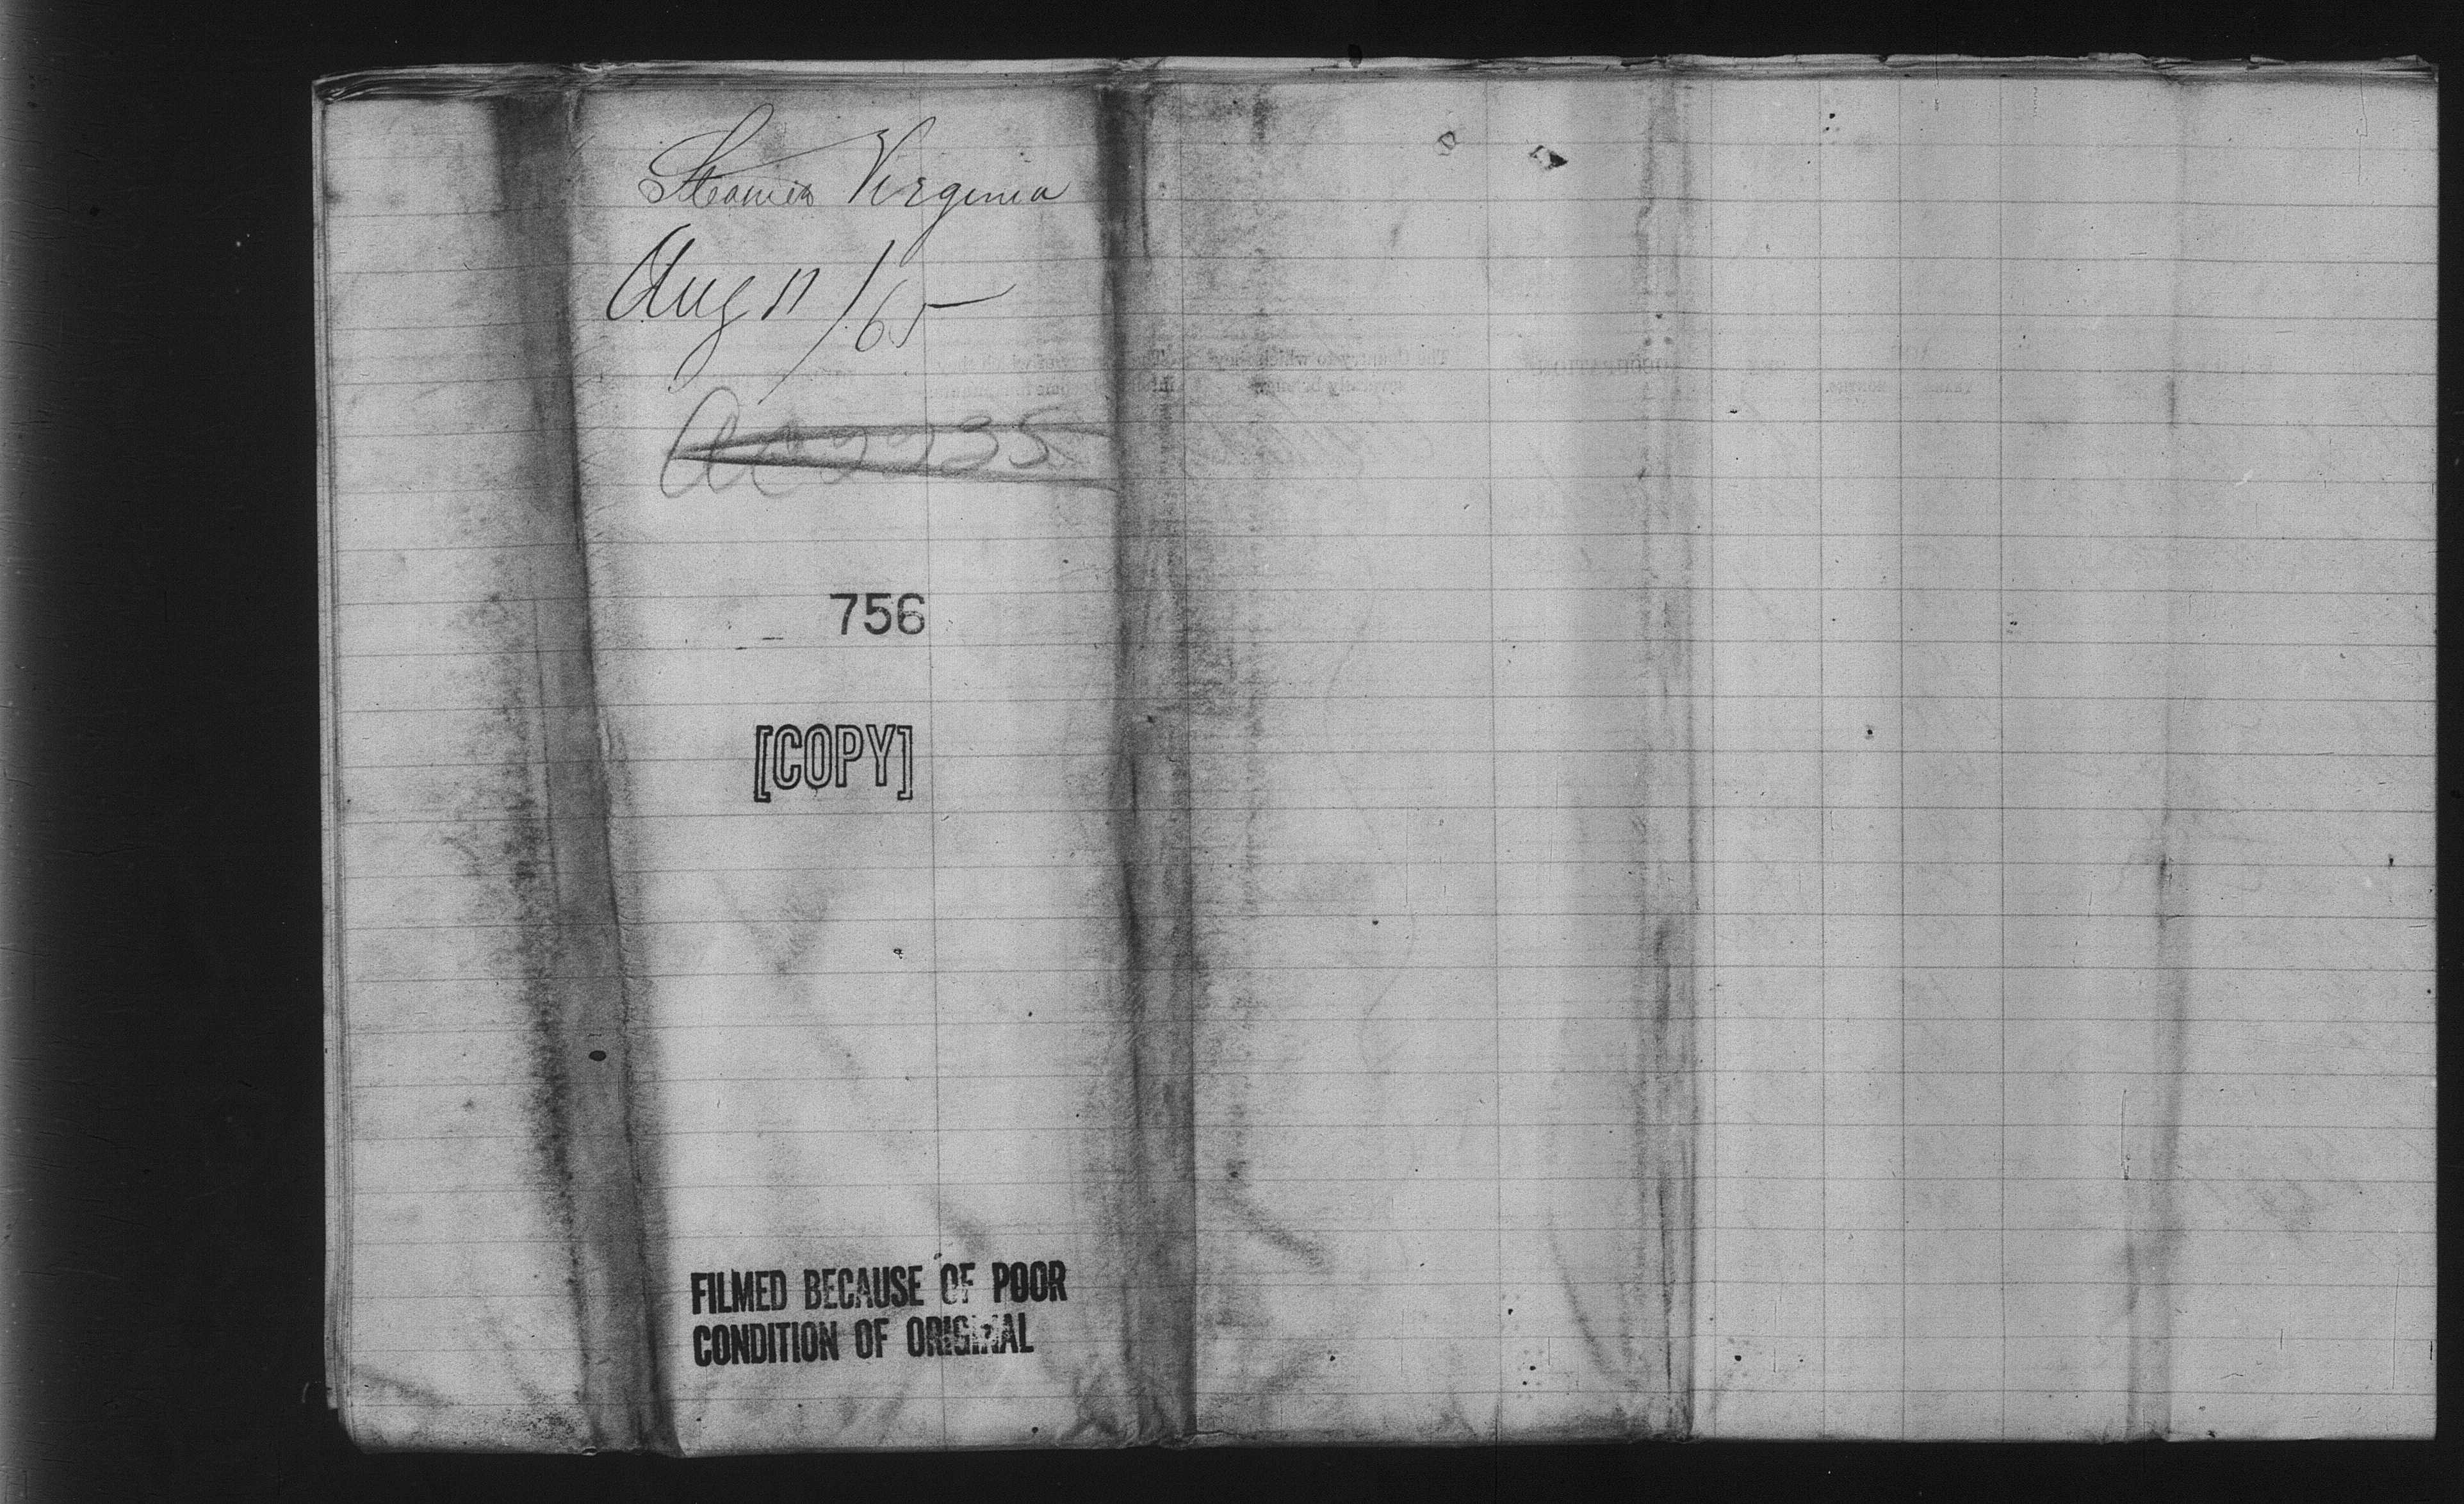 Steamer Virginia
Aug 11/65
756
[COPY]
FILMED BECAUSE OF POOR
CONDITION OF ORIGINAL